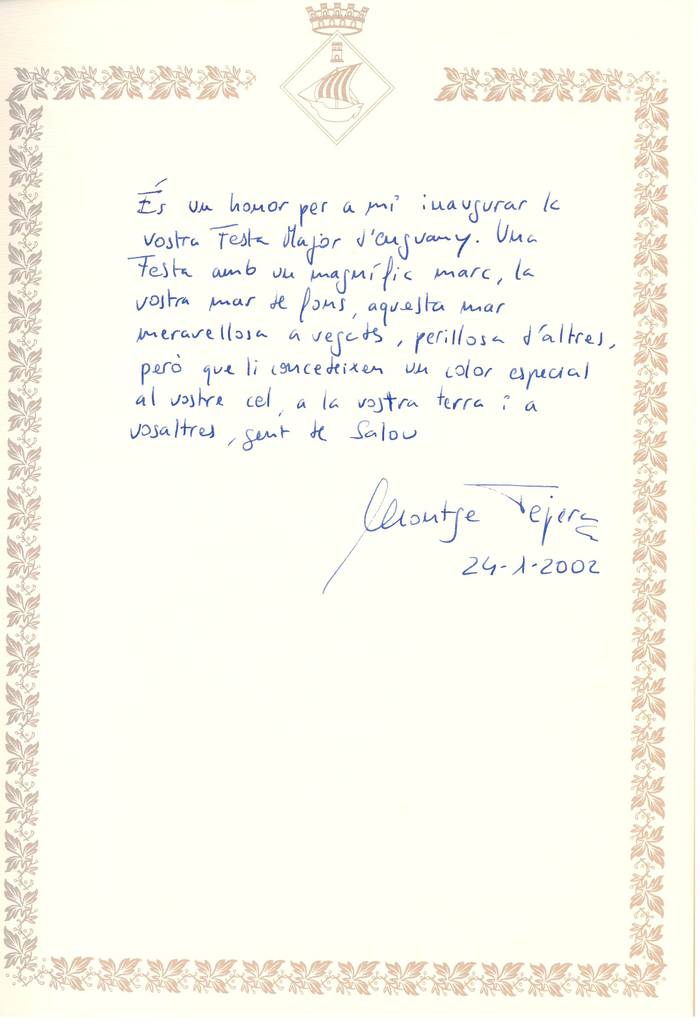 És un honor per a mi inaugurar la
vostra Festa Major d'enguany. Una
Festa amb un magnífic marc, la
vostra mar de fons, aquesta mar
meravellosa a vegades, perillosa d'altres,
però que li concedeixen un color especial
al vostre cel, a la vostra terra i a
vosaltres, gent de Salou
Montse Tejera
24-1-2002